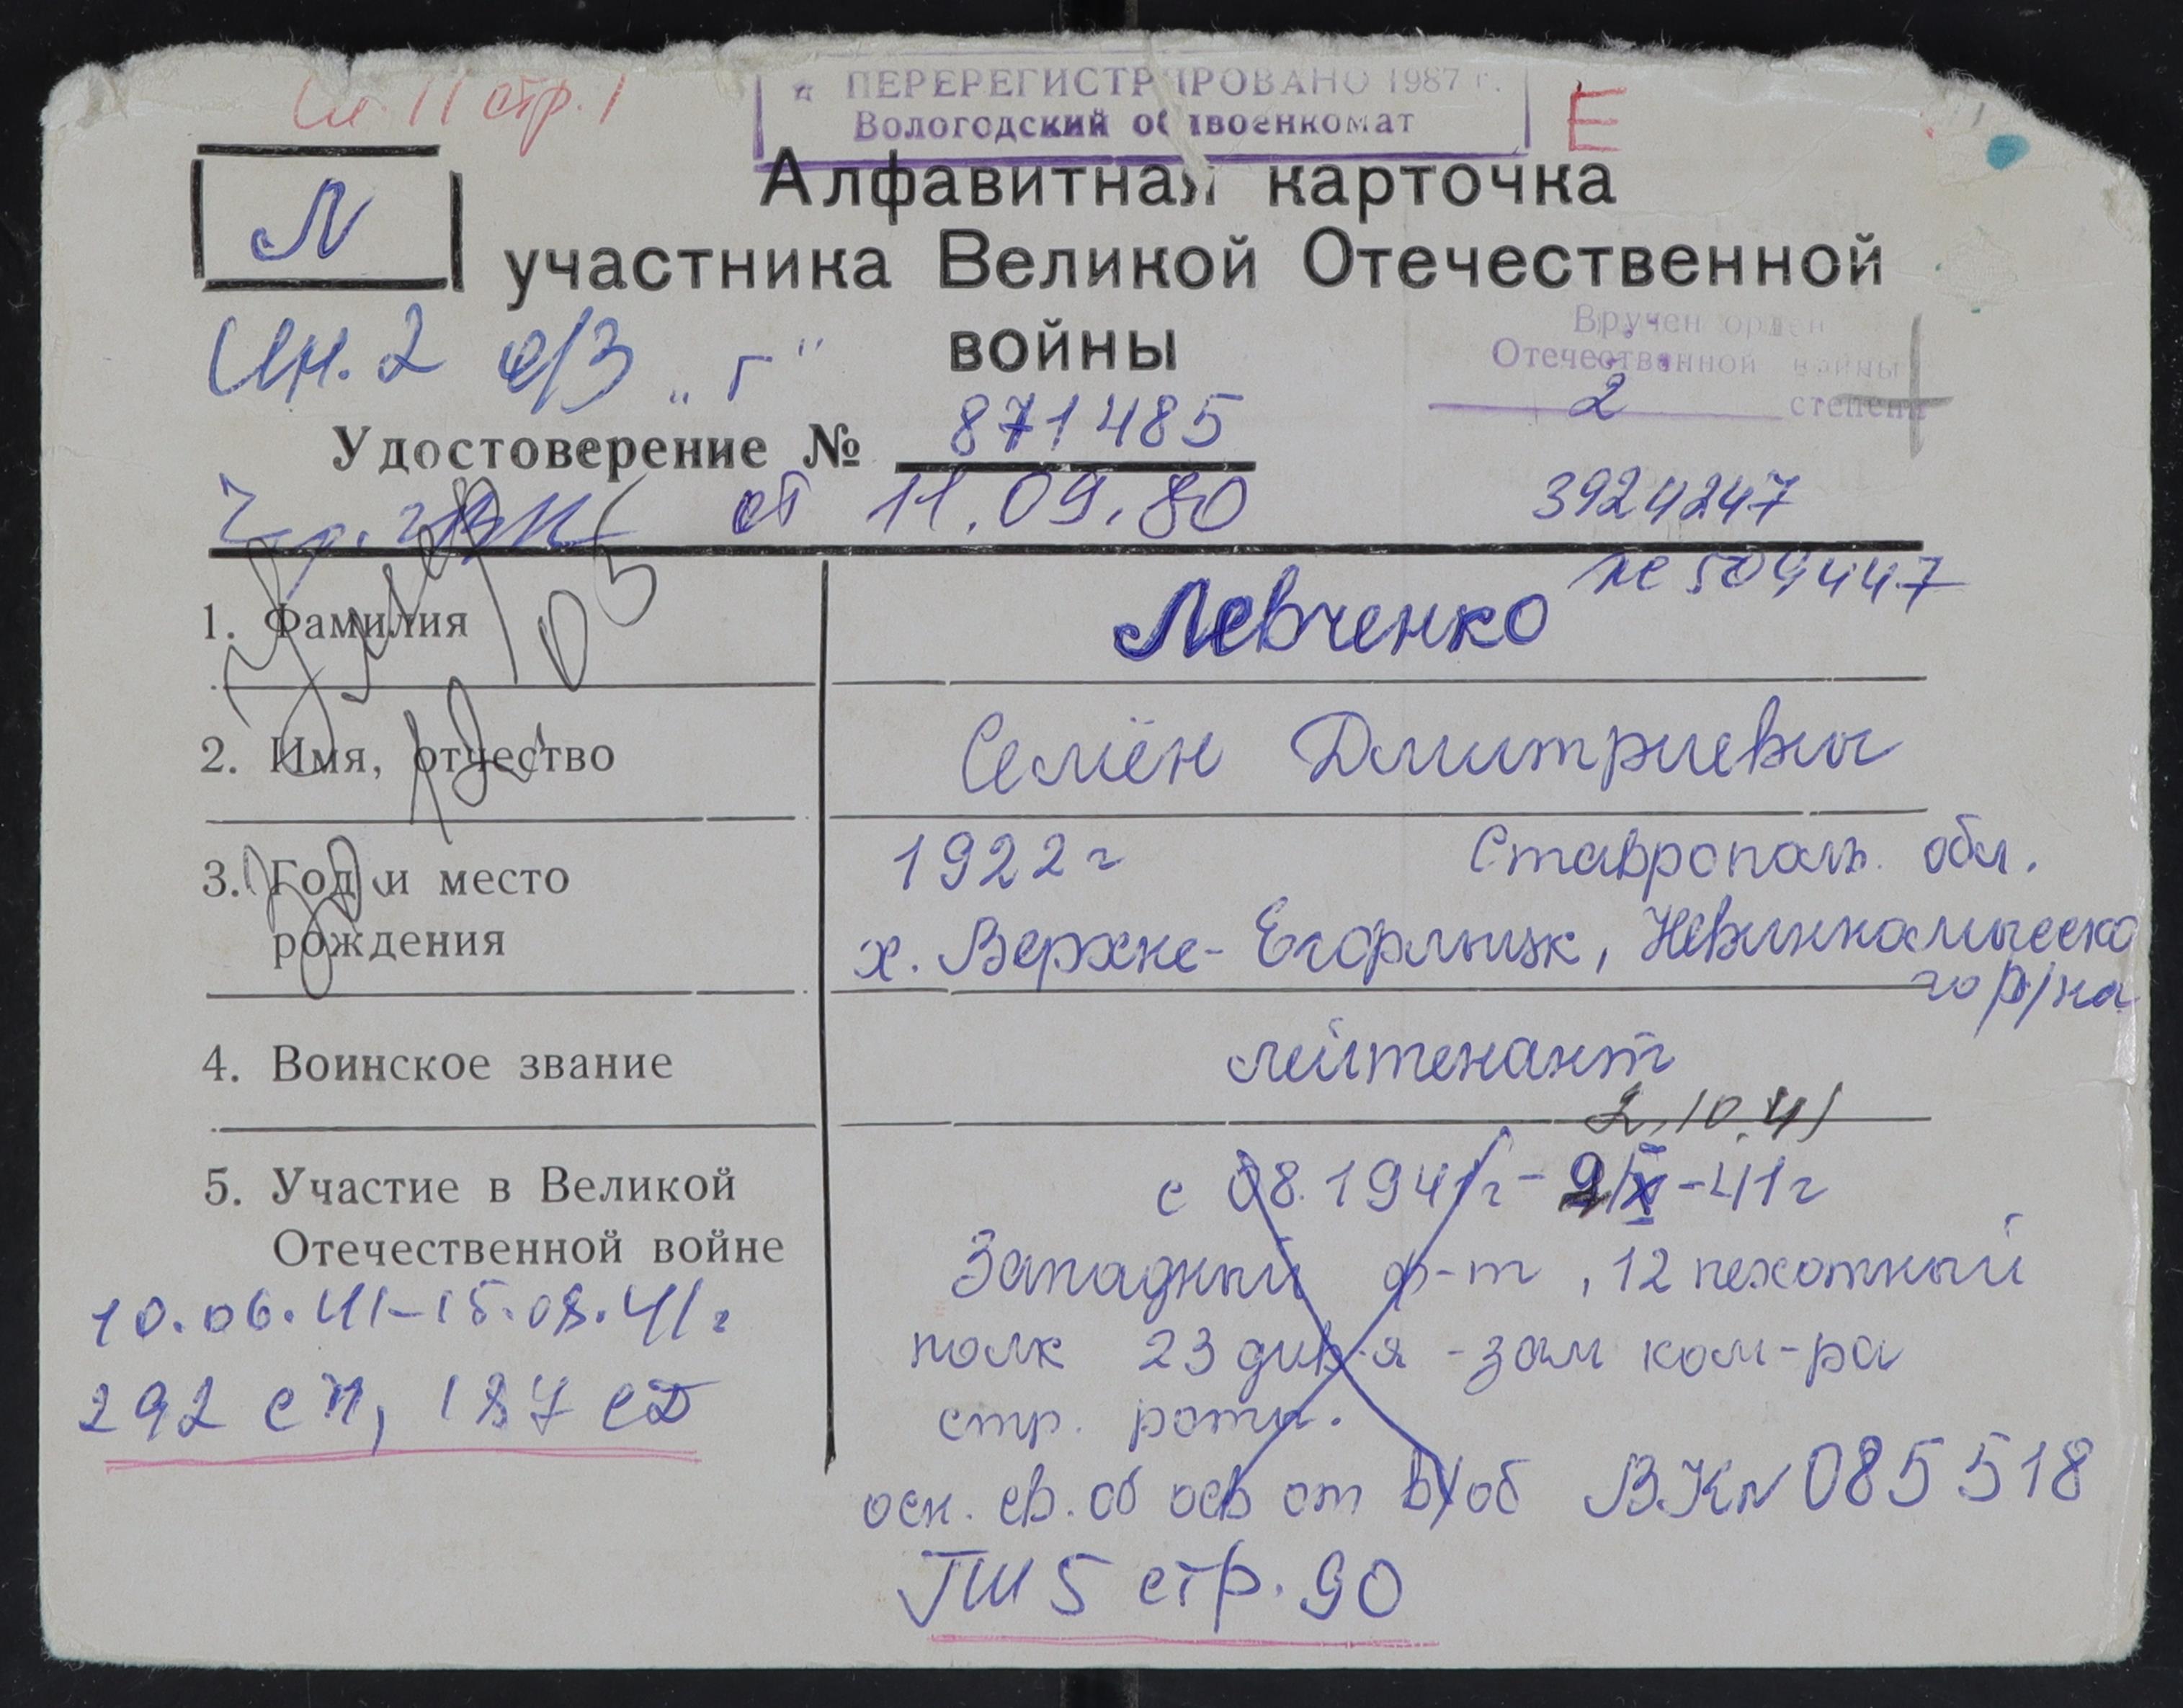 стр. 1
ПЕРЕРЕГИСТРИРОВАНО 1987 г.
Вологодский облвоенкомат
Е
Л
Алфавитная карточка
участника Великой Отечественной
войны
Ин. 2 о/з „г"
Вручен орден
Отечественной войны
2 степени
Удостоверение № 871485
от 11.09.80
3924247
№ 5094447
1. Фамилия
Левченко
2. Имя, отчество
Семён Дмитриевич
3. Год и место
рождения
1922 г Ставрополь. обл.
х. Верхне-Егорлыцк, Невинномысско
го р/на
4. Воинское звание
лейтенант
2.10.41
5. Участие в Великой
Отечественной войне
с 08.1941г - -41г
Западный ф-т, 12 пехотный
полк 23 див-я - зам ком-ра
стр. роты.
10.06.41-15.08.41г
292 сп, 187 сД
осн. св. об осв от в/об В.К№ 085518
ГШ 5 стр. 90